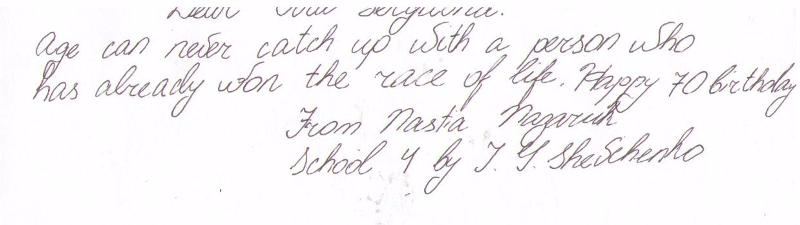 Dear
age can never catch up with a person who
has already won the race of life. Happy 70 birthday
From Nastia Nagaruk
School 4 by T. G. Shevchenko